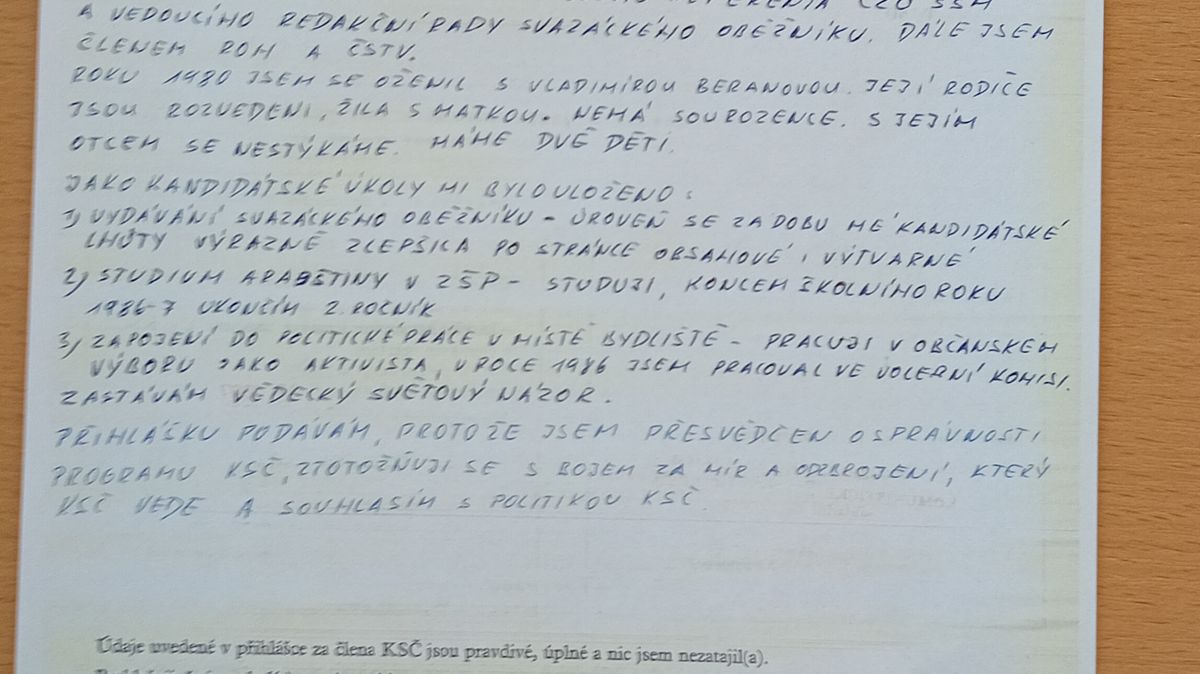 ČZO SSM
A VEDOUCÍHO REDAKČNÍ RADY SVAZÁCKÉHO OBĚŽNÍKU. DÁLE JSEM
ČLENEM ROH A ČSTV.
ROKU 1980 JSEM SE OŽENIL S VLADIMÍROU BERANOVOU. JEJÍ RODIČE
JSOU ROZVEDENI, ŽILA S MATKOU. NEMÁ SOUROZENCE. S JEJÍM
OTCEM SE NESTÝKÁME. MÁME DVĚ DĚTI.
JAKO KANDIDÁTSKÉ ÚKOLY MI BYLO ULOŽENO:
1) VYDÁVÁNÍ SVAZÁCKÉHO OBĚŽNÍKU - ÚROVEŇ SE ZA DOBU MÉ KANDIDÁTSKÉ
LHŮTY VÝRAZNĚ ZLEPŠILA PO STRÁNCE OBSAHOVÉ I VÝTVARNÉ
2) STUDIUM ARABŠTINY V ZŠP - STUDUJI, KONCEM ŠKOLNÍHO ROKU
1986-7 UKONČÍM 2. ROČNÍK
3) ZAPOJENÍ DO POLITICKÉ PRÁCE V MÍSTĚ BYDLIŠTĚ - PRACUJI V OBČANSKÉM
VÝBORU JAKO AKTIVISTA, V ROCE 1986 JSEM PRACOVAL VE VOLEBNÍ KOMISI.
ZASTÁVÁM VĚDECKÝ SVĚTOVÝ NÁZOR.
PŘIHLÁŠKU PODÁVÁM, PROTOŽE JSEM PŘESVĚDČEN O SPRÁVNOSTI
PROGRAMU KSČ, ZTOTOŽŇUJI SE S BOJEM ZA MÍR A ODZBROJENÍ, KTERÝ
KSČ VEDE A SOUHLASÍM S POLITIKOU KSČ.
Údaje uvedené v přihlášce za člena KSČ jsou pravdivé, úplné a nic jsem nezatajil(a).